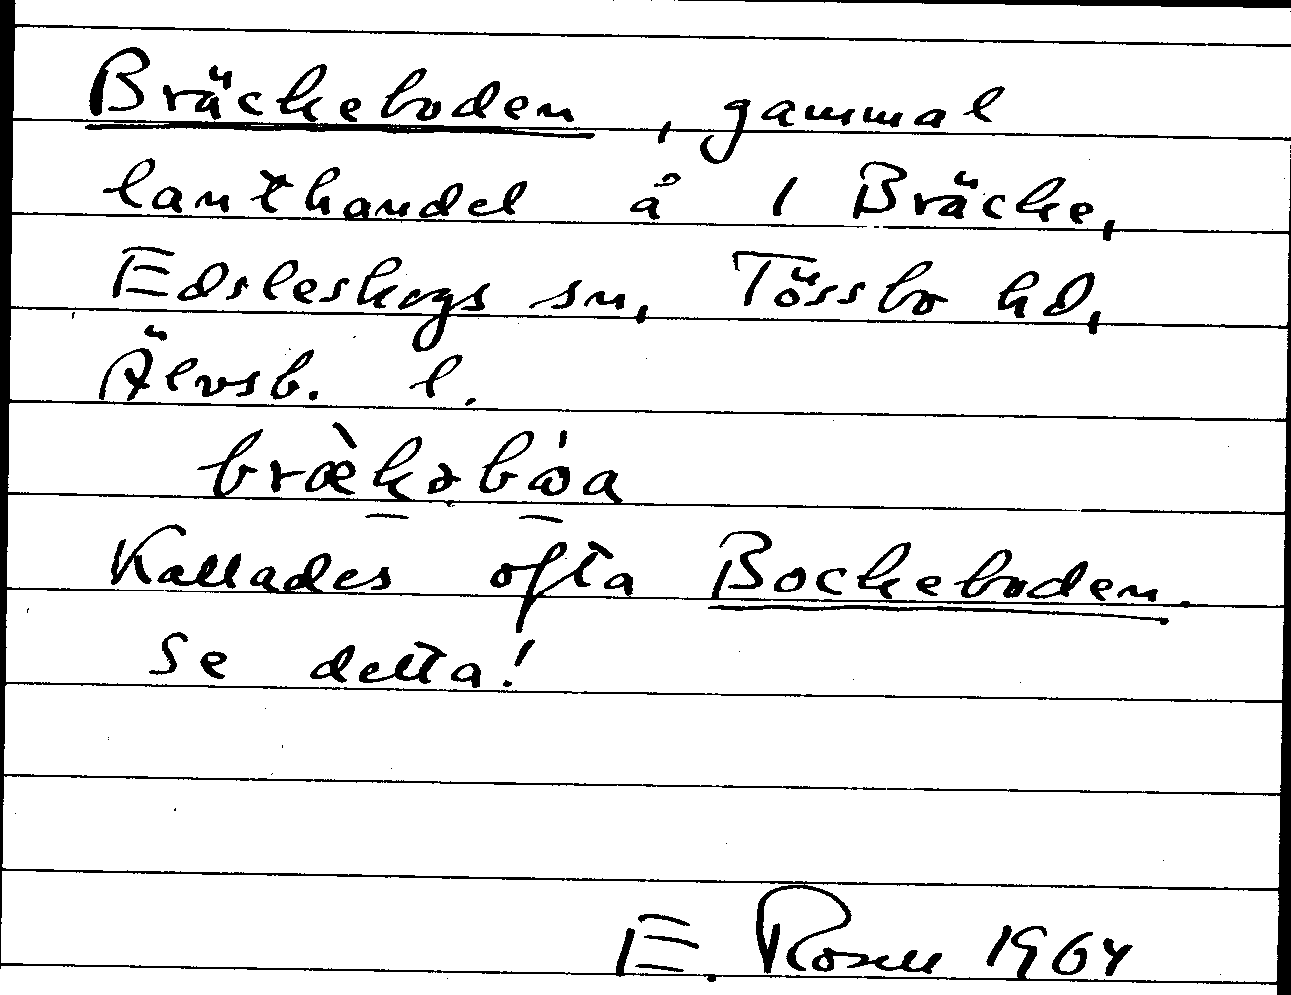 Bräckeboden, gammal
lanthandel å 1 Bräcke,
Edsleskogs sn, Tössbo hd,
Älvsb. l.
Kallades ofta Bockeboden.
Se detta!
E. Rosell 1964